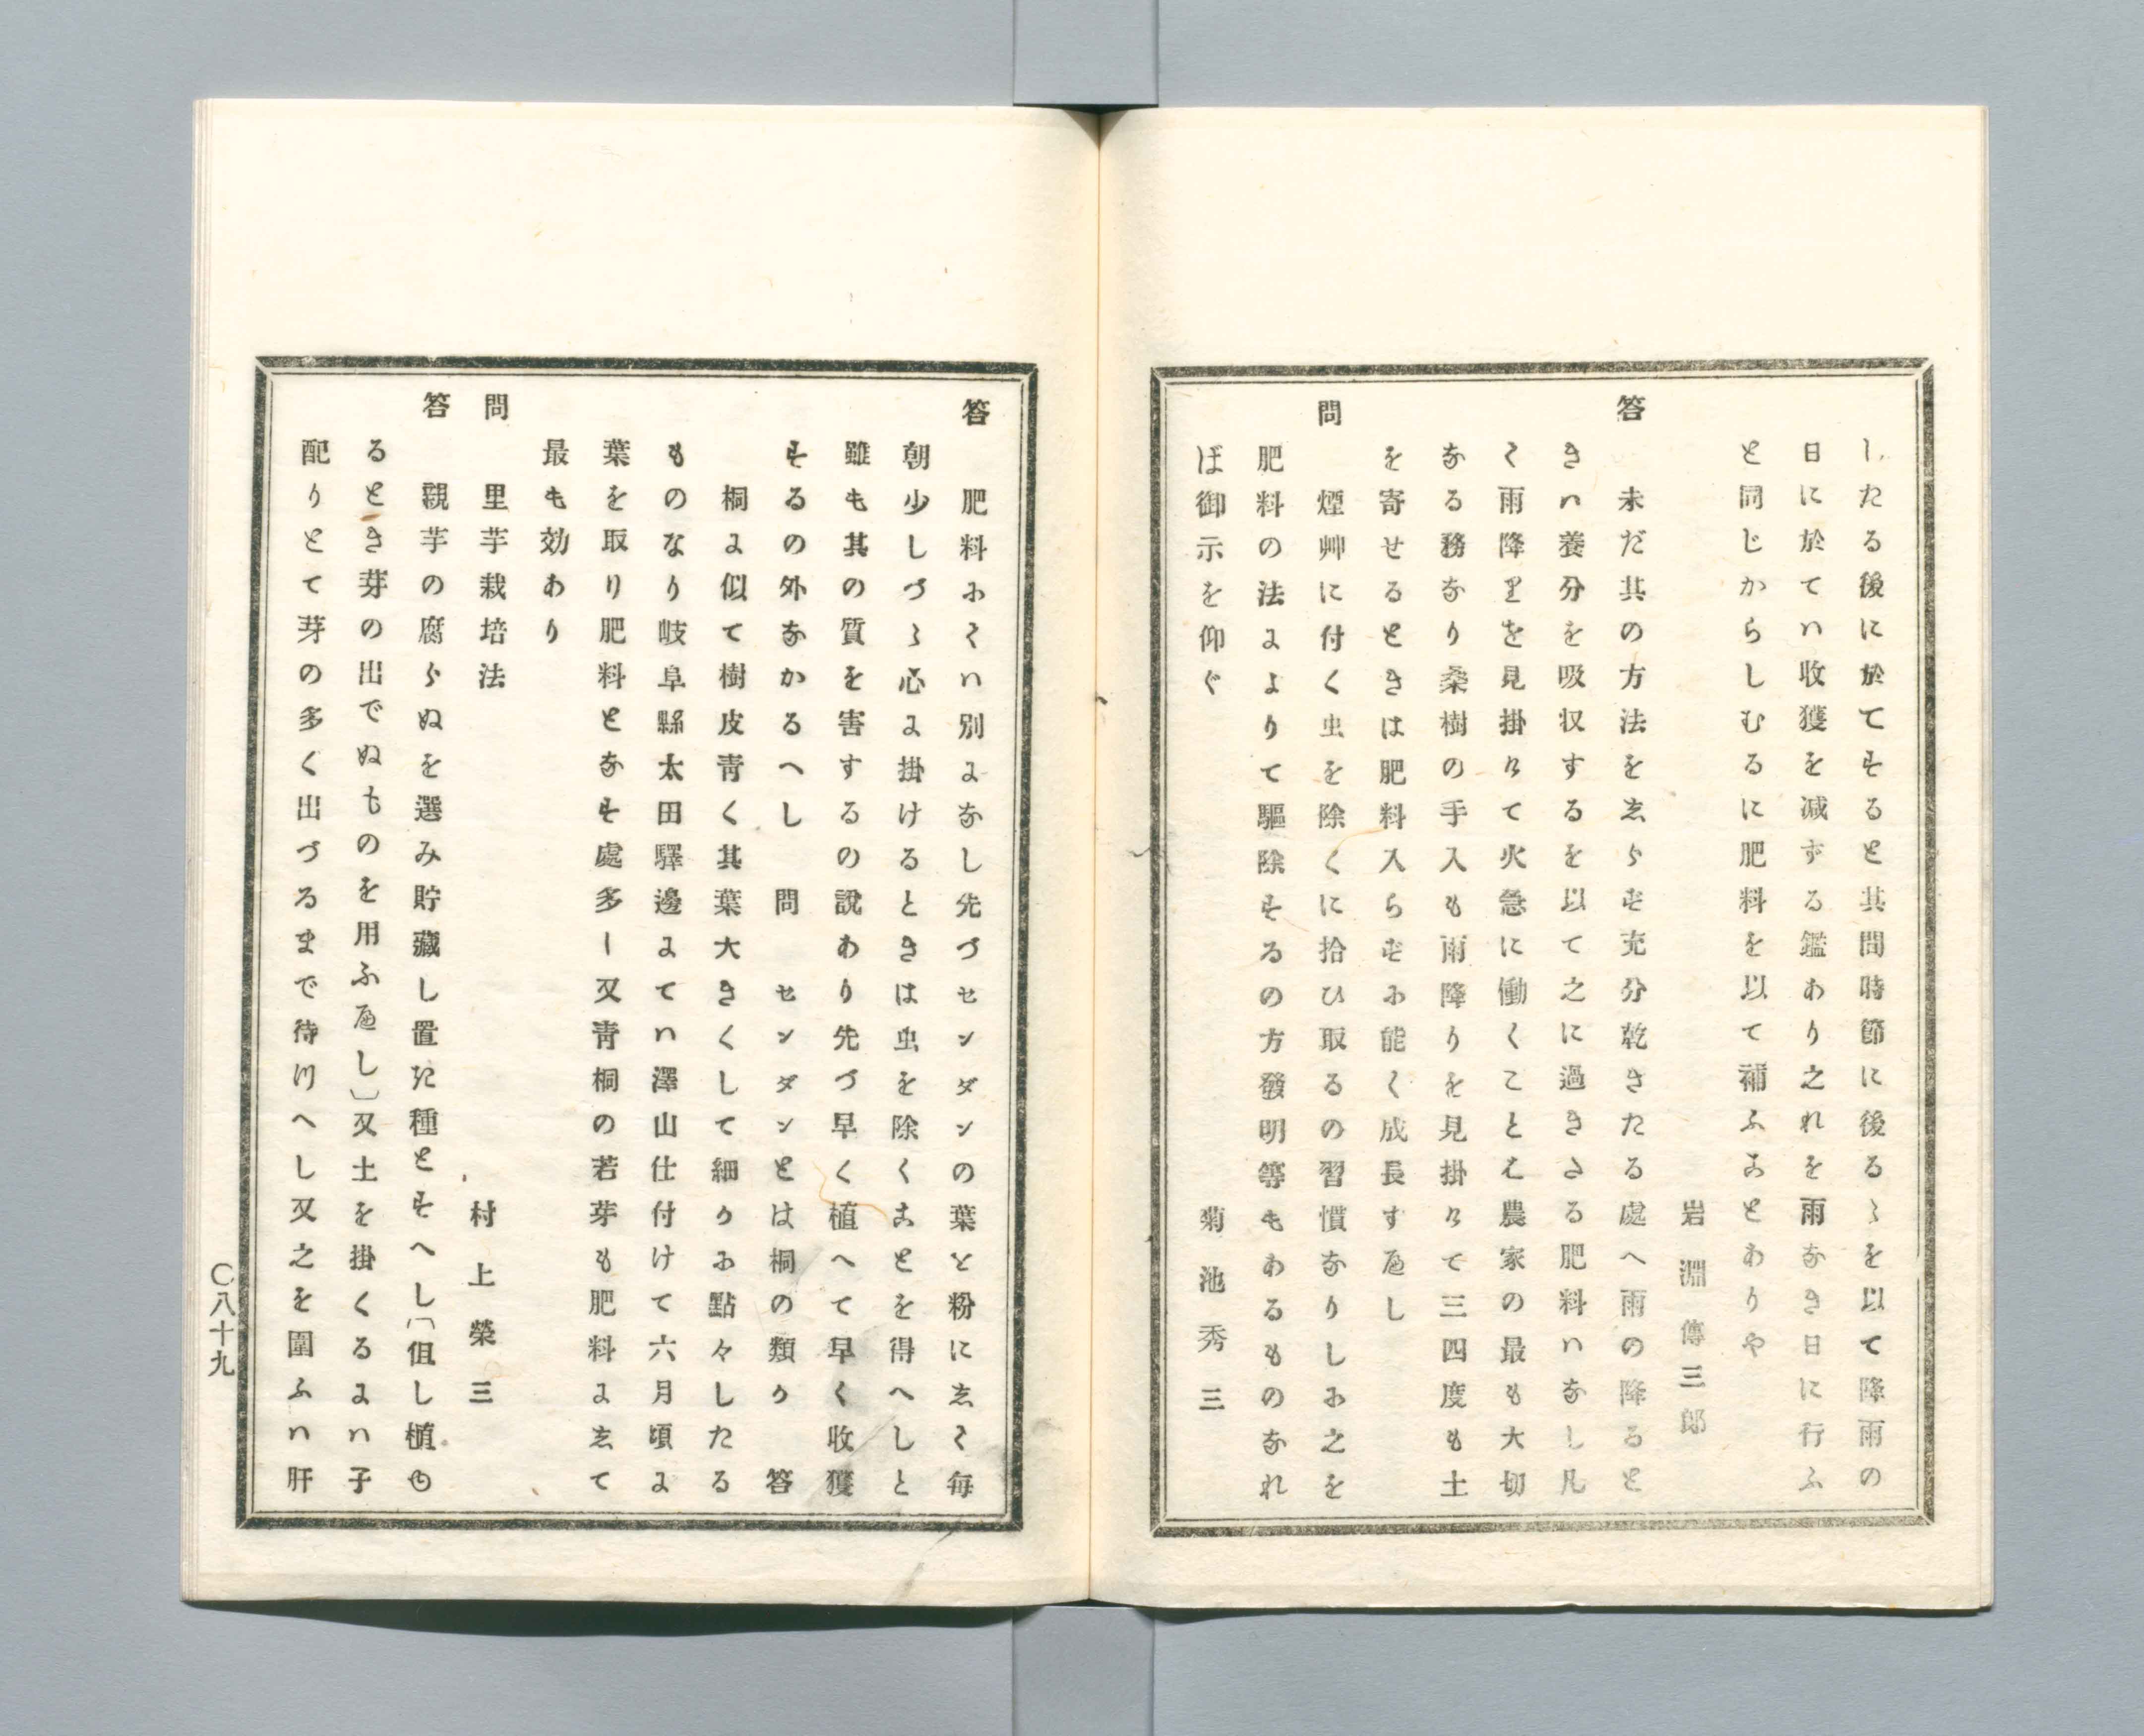 したる後に於てすると其間時節に後るゝを以て降雨の
日に於てハ收獲を減ずる鑑あり之れを雨なき日に行ふ
と同じからしむるに肥料を以て補ふことありや
岩淵傳三郎
答　未だ其の方法をゑらず充分乾きたる處へ雨の降ると
きハ養分を吸収するを以て之に過きさる肥料ハなし凡
く雨降りを見掛けて火急に働くことは農家の最も大切
なる務なり桑樹の手入も雨降りを見掛けて三四度も土
を寄せるときは肥料入らずお能く成長すべし
問　煙艸に付く虫を除くに拾ひ取るの習慣なりしお之を
肥料の法によりて驅除するの方發明等もあるものなれ
ば御示を仰ぐ
菊池秀三
答　肥料おくハ別になし先づセンダンの葉と粉にゑく每
朝少しづゝ心に掛けるときは虫を除くことを得へしと
雖も其の質を害するの說あり先づ早く植へて早く收獲
するの外なかるへし　問　センダンとは桐の類か　答
桐に似て樹皮靑く其葉大きくして細かお點々したる
ものなり岐阜縣太田驛邊にてハ澤山仕付けて六月頃に
葉を取り肥料となす處多し又靑桐の若芽も肥料にゑて
最も効あり
問　里芋栽培法
村上榮三
答　親芋の腐らぬを選み貯藏し置き種とすへし〔但し植の
るとき芽の出でぬものを用ふべし〕又土を掛くるにハ子
配りとて芽の多く出づるまで待つへし又之を圍ふハ肝
〇八十九